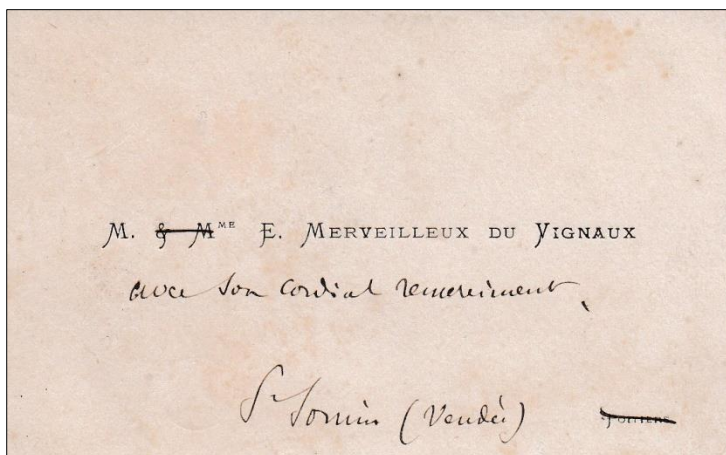 M. & Mme E. Merveilleux du Vignaux
avec son cordial remerciment
St Sornin (Vendée) Poitiers